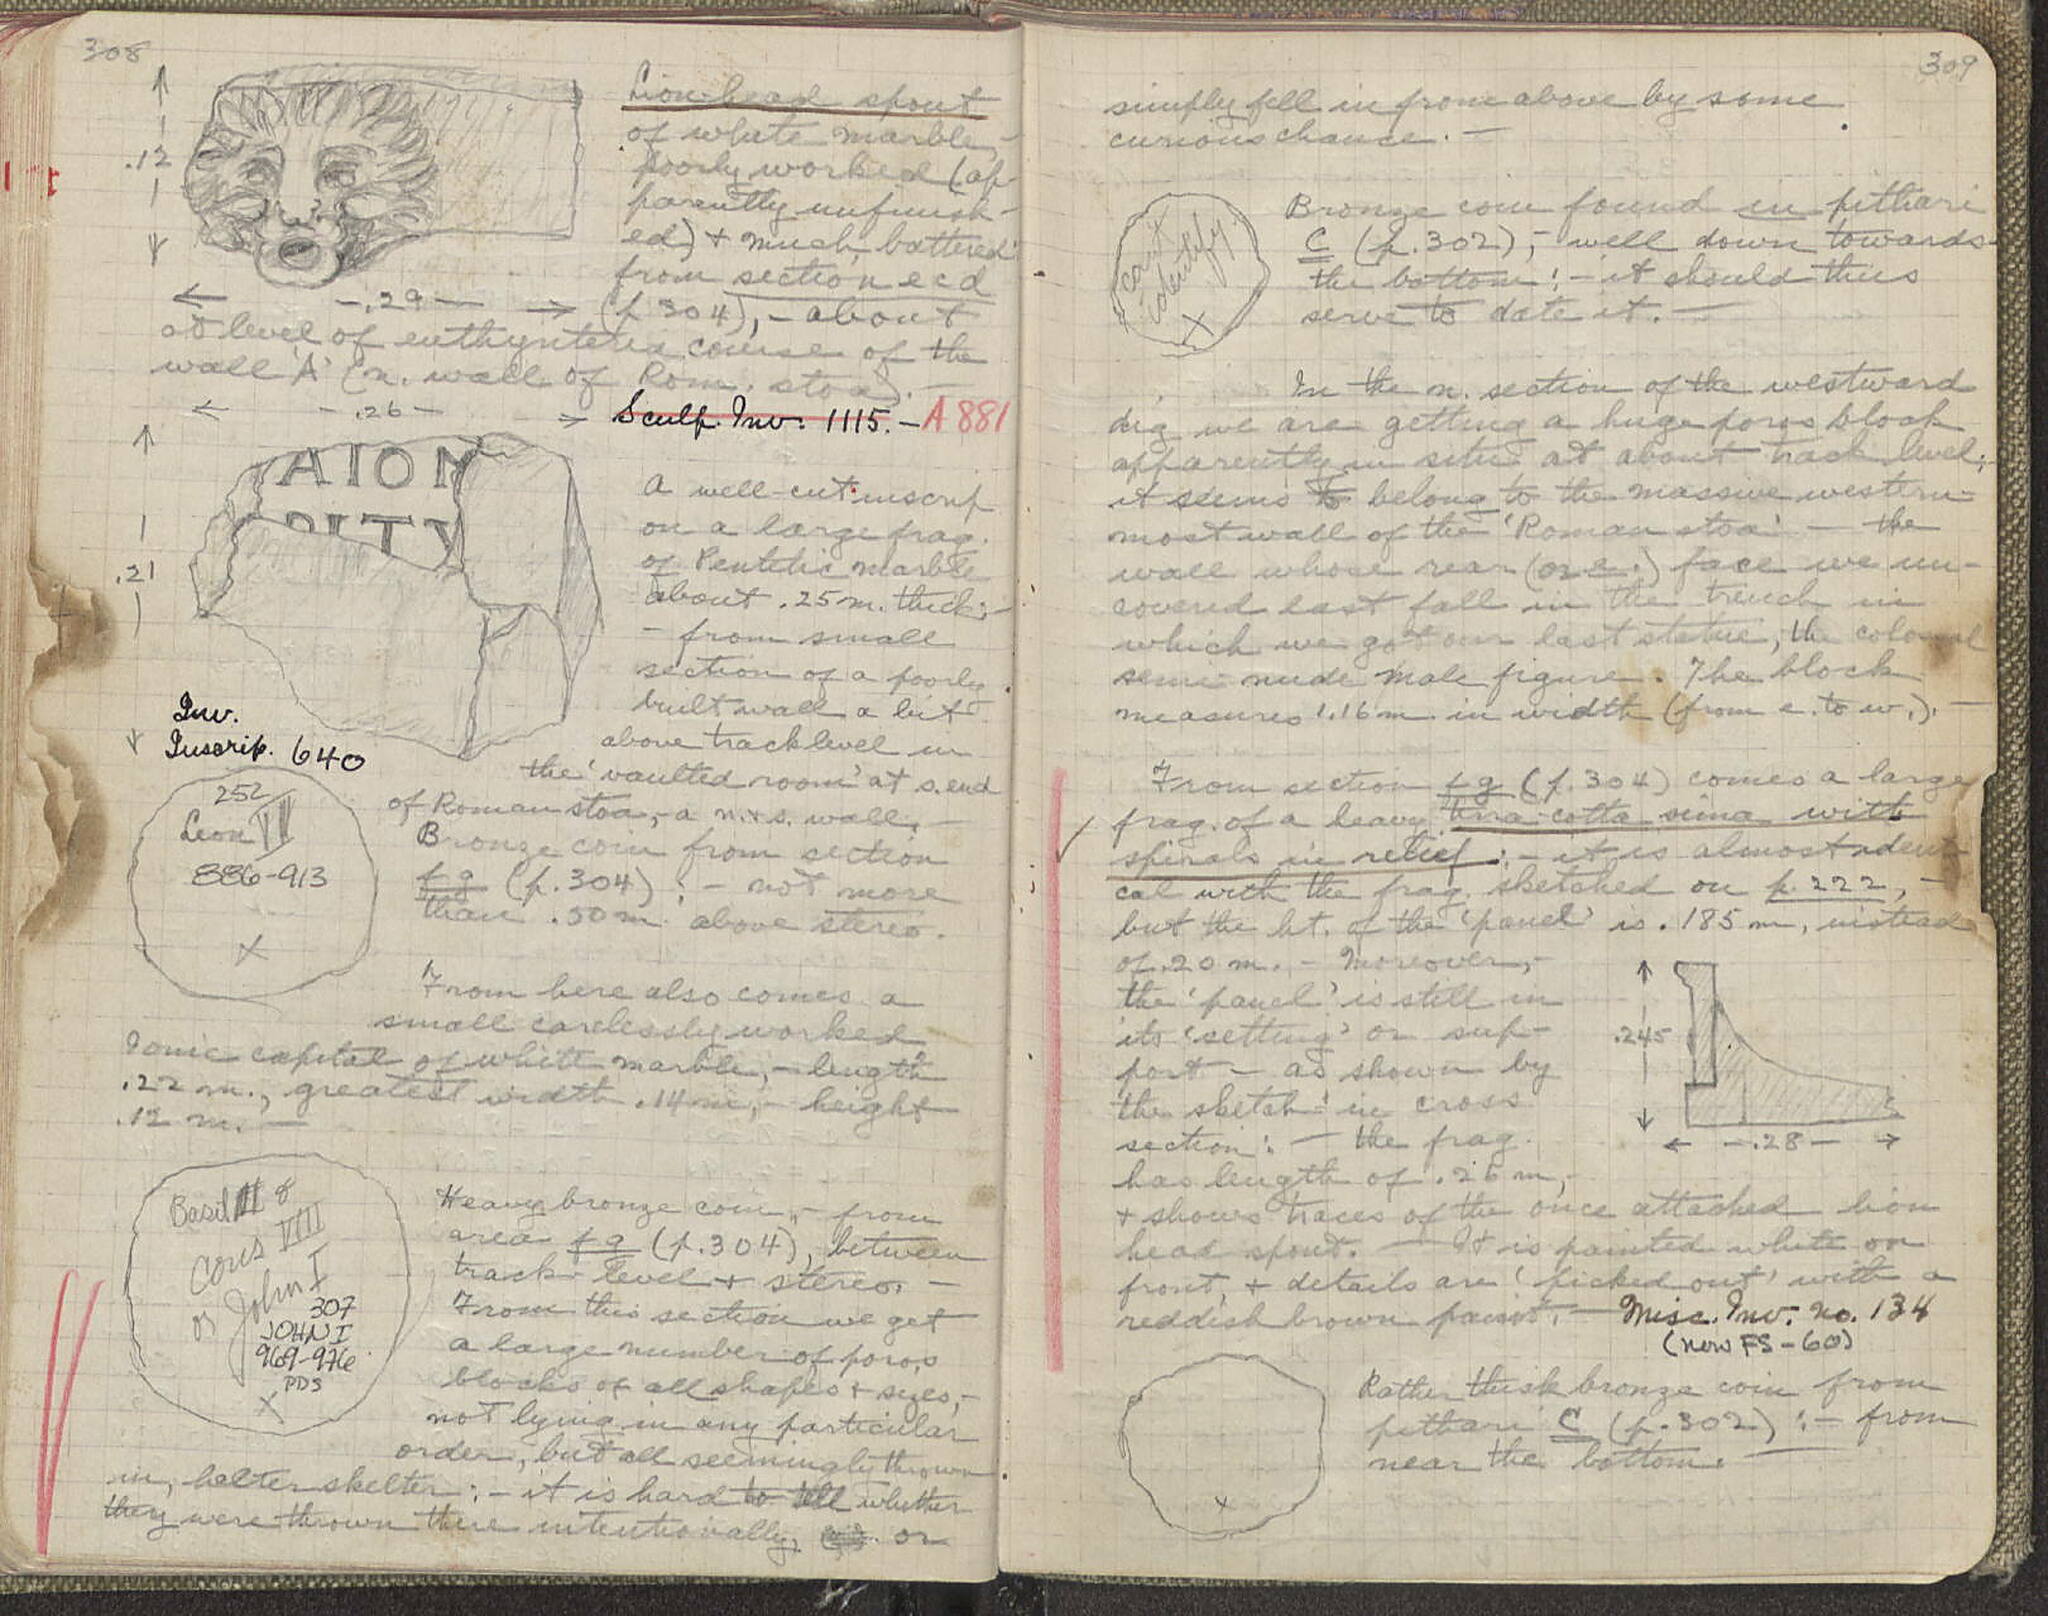 308
.12
Lion-head spout
of white marble, -
poorly worked (ap-
parently unfinish-
ed) + much battered:
from section e c d
(p. 304), - about
.29
at level of euthynteria course of the
wall 'A' (n. wall of Rom. stoa). -
.26
Sculp. Inv. 1115. - A 881
ΑΙΟΝ
ΡΙΤΥ
.21
A well-cut inscrip
on a large frag.
of Pentelic marble
about .25 m. thick; -
- from small
section of a poorly
built wall a bit
above track level in
the 'vaulted room' at s. end
of Roman stoa, - a n. + s. wall. -
Inv.
Inscrip. 640
252
Leon VI
886-913
X
Bronze coin from section
f g (p. 304) : - not more
than .50 m. above stereo.
From here also comes a
small carelessly worked
Ionic capital of white marble, - length
.22 m., greatest width .14 m, - height
.12 m. -
Basil II &
Cons VIII
or John I
307
JOHN I
969-976
PDS
X
Heavy bronze coin, - from
area f g (p. 304), between
track level + stereo. -
From this section we get
a large number of poros
blocks of all shapes + sizes, -
not lying in any particular
order, but all seemingly thrown
in, helter skelter : - it is hard to tell whether
they were thrown there intentionally, or
309
simply fell in from above by some
curious chance. -
can't
identify
X
Bronze coin found in pithari
C (p. 302), - well down towards
the bottom : - it should thus
serve to date it. -
In the n. section of the westward
dig we are getting a huge poros block
apparently in situ at about track level; -
it seems to belong to the massive western-
most wall of the 'Roman stoa' - the
wall whose rear (or e.) face we un-
covered last fall in the trench in
which we got our last statue, the colossal
semi-nude male figure. The block
measures 1.16 m. in width (from e. to w.). -
From section f g (p. 304) comes a large
frag. of a heavy terra-cotta sima with
spirals in relief : - it is almost identi-
cal with the frag. sketched on p. 222, -
but the ht. of the 'panel' is .185 m, instead
of .20 m. - Moreover, -
the 'panel' is still in
its 'setting' or sup-
port - as shown by
the sketch in cross
section : - the frag.
has length of .26 m, -
.245
.28
+ shows traces of the once attached lion
head spout. - It is painted white on
front, + details are 'picked out' with a
reddish brown paint. - Misc. Inv. no. 134
(now FS-60)
X
Rather thick bronze coin from
pithari C (p. 302) : - from
near the bottom. -